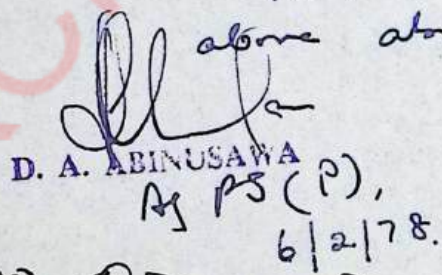 above
D. A. ABINUSAWA
Ag PS (P),
6/2/78.